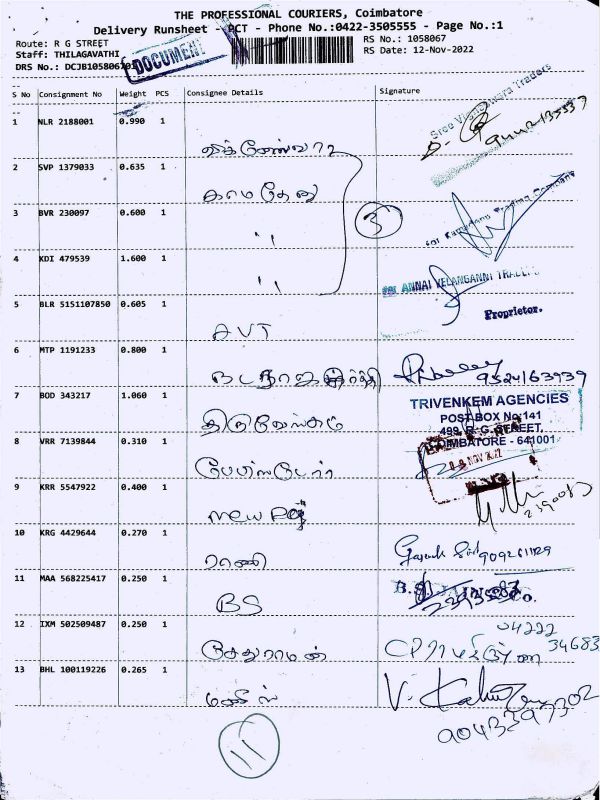 THE PROFESSIONAL COURIERS, Coimbatore
Delivery Runsheet - PCT - Phone No.:0422-3505555 - Page No.:1
Route: R G STREET
RS No.: 1058067
Staff: THILAGAVATHI
RS Date: 12-Nov-2022
DRS No.: DCJB105806701
DOCUMENT
S No Consignment No Weight PCS Consignee Details Signature
1 NLR 2188001 0.990 1
Sree Vigneshwara Traders
2 SVP 1379033 0.635 1
காமதேனு
3 BVR 230097 0.600 1
"
3
Sri Kamadenu Trading Company
4 KDI 479539 1.600 1
"
SRI ANNAI VELANGANNI TRADERS
Proprietor.
5 BLR 5151107850 0.605 1
AVT
6 MTP 1191233 0.800 1
9524163939
7 BOD 343217 1.060 1
TRIVENKEM AGENCIES
POST BOX No:141
499, R. G. STREET,
COIMBATORE - 641001
8 VRR 7139844 0.310 1
NOV 2022
9 KRR 5547922 0.400 1
New
10 KRG 4429644 0.270 1
ராணி
11 MAA 568225417 0.250 1
BS
12 IXM 502509487 0.250 1
சேதுராமன்
04222
34683
13 BHL 100119226 0.265 1
V.
9043397302
11